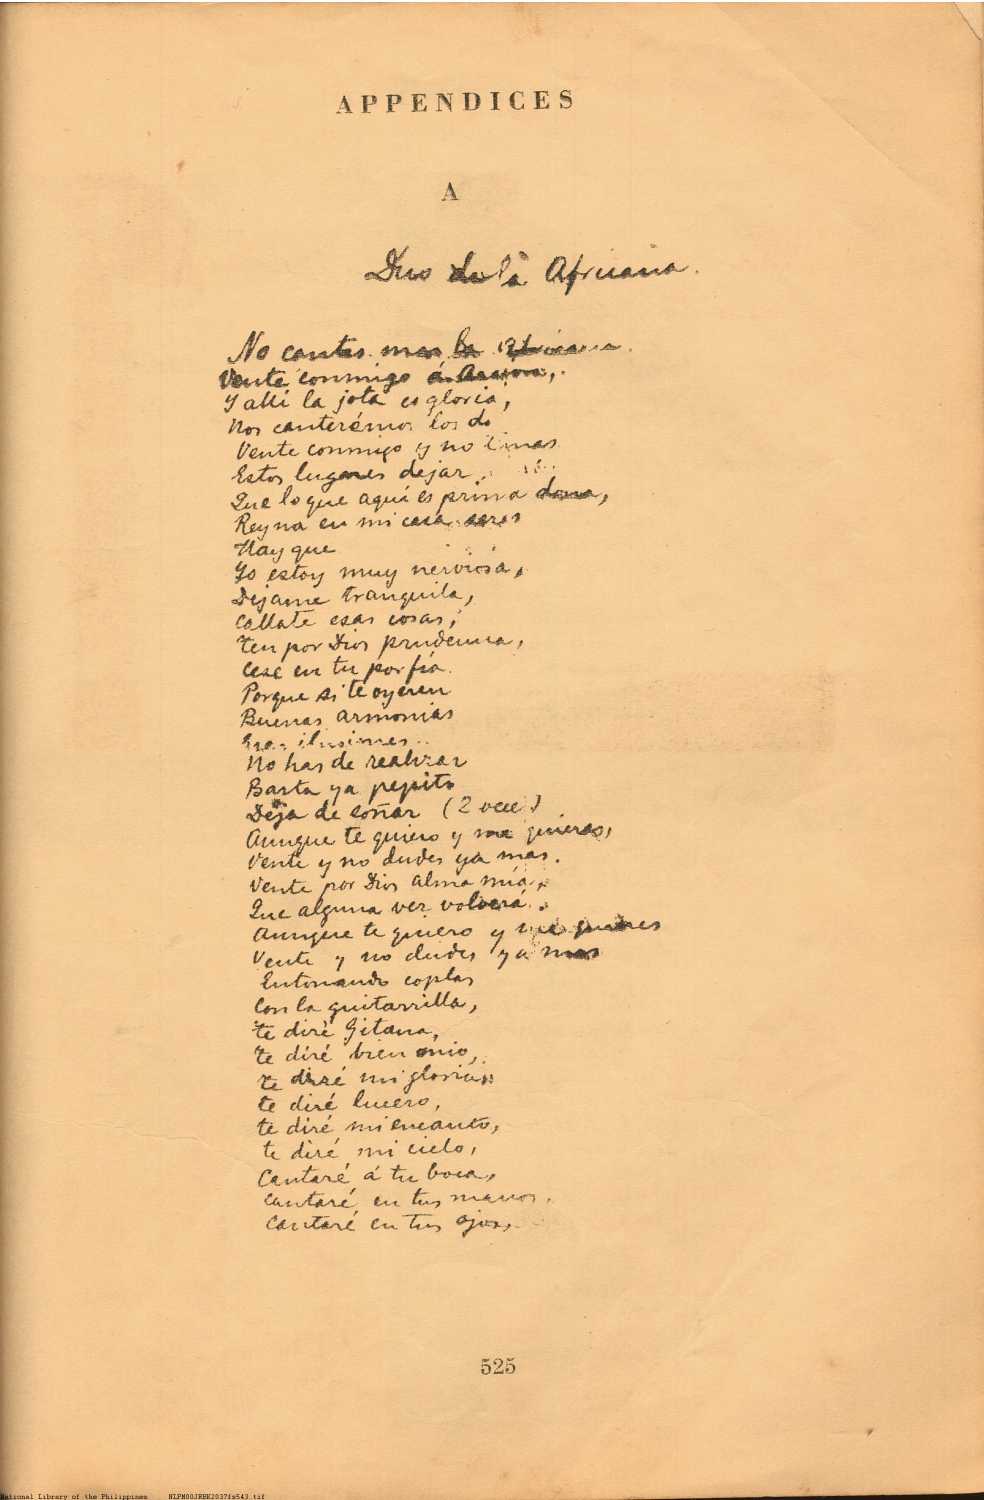 APPENDICES
A
Duo de la Africana.
No cantes mas la Africana.
Vente conmigo á Aragon,
Y alli la jota es gloria,
Nos canterémos los do
Vente conmigo y no
Estos lugares dejar
Que lo que aquí es prima dona,
Reyna en mi casa seras
Hay que
Yo estoy muy nerviosa,
Dejame tranquila,
Callate esas cosas;
ten por Dios prudencia,
Cese en tu porfía.
Porque si te oyeren
Buenas armonias
ilusiones..
No has de realizar
Basta ya pepito
Deja de soñar (2 vece)
Aunque te quiero y me quieres,
Vente y no dudes ya mas.
Vente por Dios alma mía,
Que alguna vez volverá.
Aunque te quiero y me quieres
Vente y no dudes ya mas
Entonando coplas
Con la guitarrilla,
te diré Gitana,
te diré bien mio,
te diré mi gloria,
te diré lucero,
te diré mi encanto,
te diré mi cielo,
Cantaré á tu boca,
cantaré en tus manos.
Cantaré en tus ojos,
525
National Library of the Philippines NLPM00JRBK2037fs543.tif